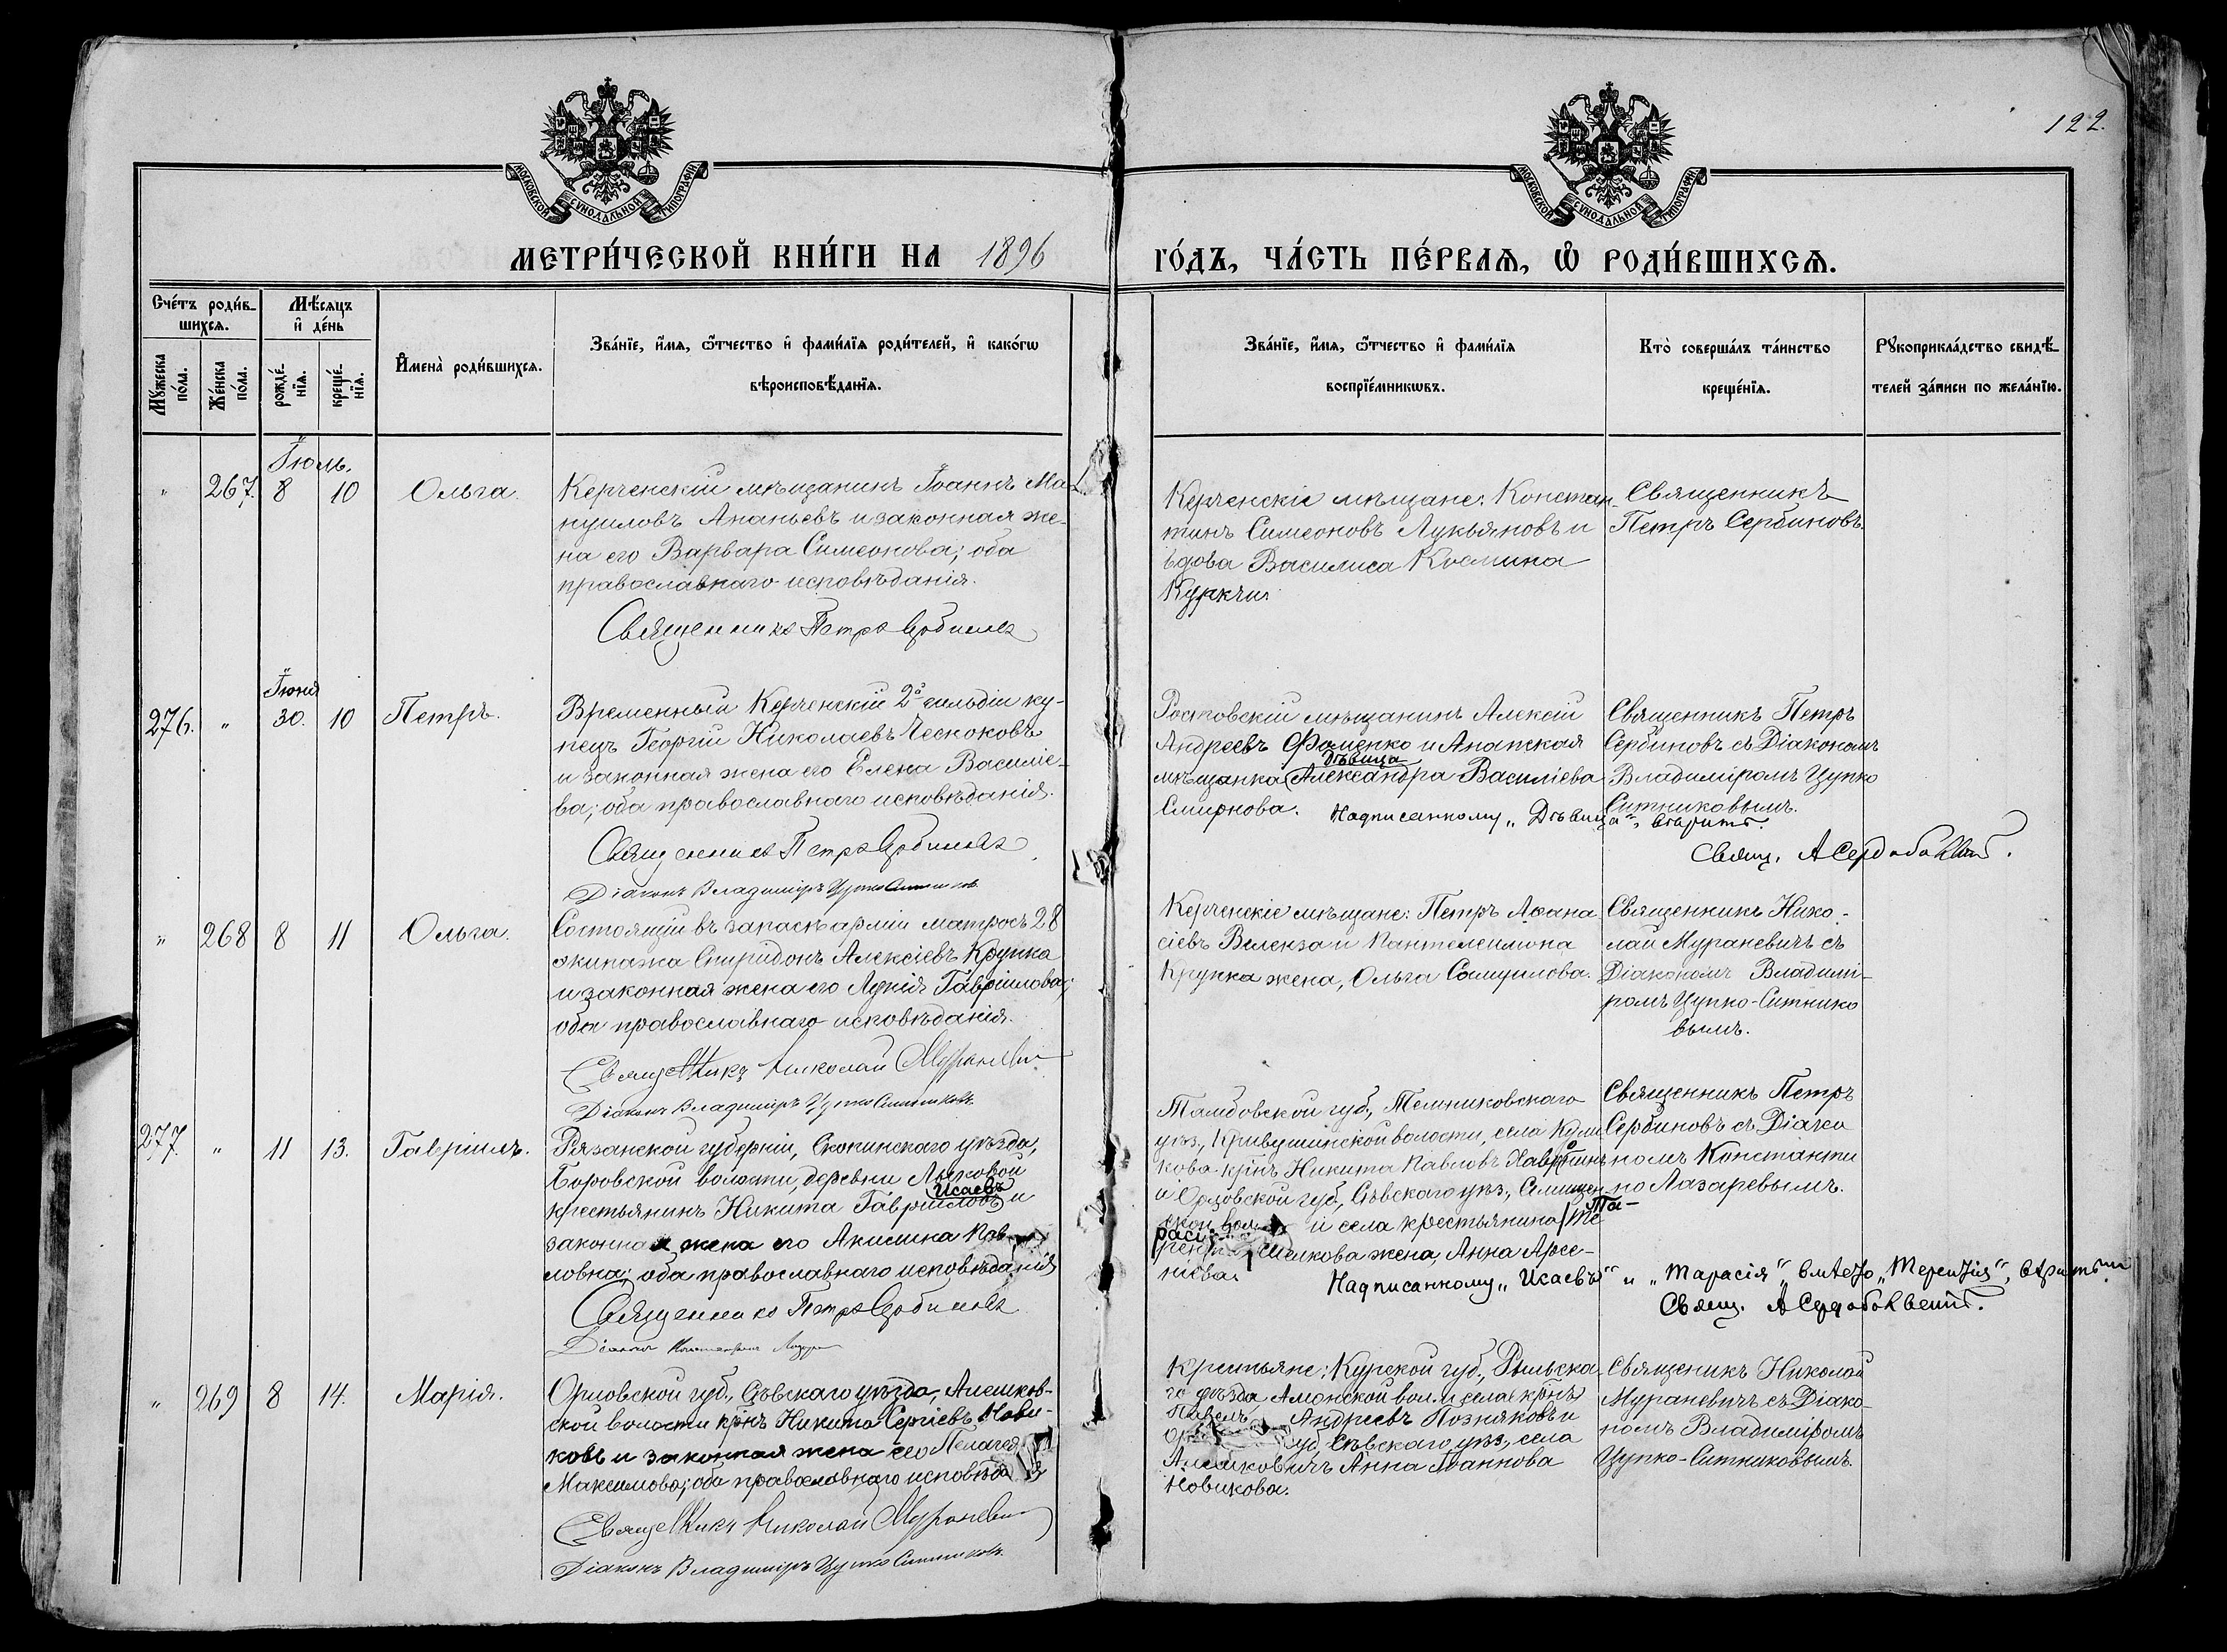 122.
МОСКОВСКОЙ СѴНОДАЛЬНОЙ ТИПОГРАФІИ
МОСКОВСКОЙ СѴНОДАЛЬНОЙ ТИПОГРАФІИ
МЕТРИ́ЧЕСКОЙ КНИ́ГИ НА 1896
ГО́ДЪ, ЧА́СТЬ ПЕ́РВАѦ, Ѽ РОДИ́ВШИХСѦ.
Сче́тъ роди́в-
шихсѧ.
Мꙋ́жеска
по́ла.
Же́нска
по́ла.
Мѣ́сѧцъ
и҆ де́нь
рожде́-
нїѧ.
креще́-
нїѧ.
И҆мена̀ роди́вшихсѧ.
Зва́нїе, и҆́мѧ, ѻ҆́тчество и҆ фами́лїѧ роди́телей, и҆ како́гѡ
вѣроисповѣ́данїѧ.
Зва́нїе, и҆́мѧ, ѻ҆́тчество и҆ фами́лїѧ
воспрїе́мникѡвъ.
Кто̀ соверша́лъ та́инство
креще́нїѧ.
Рꙋкоприкла́дство свидѣ́-
телей за́писи по жела́нїю.
Іюль.
" 267. 8 10 Ольга.
Керченскій мѣщанинъ Іоаннъ Ма-
нуиловъ Ананьевъ и законная же-
на его Варвара Симеонова; оба
православнаго исповѣданія.
Священникъ Петръ Сербиновъ
Керченскіе мѣщане: Констан-
тинъ Симеоновъ Лукьяновъ и
вдова Василиса Космина
Куркчи.
Священникъ
Петръ Сербиновъ.
Іюня
276. " 30. 10 Петръ.
Временный Керченскій 2й гильдіи ку-
пецъ Георгій Николаевъ Чесноковъ
и законная жена его Елена Василіе-
ва; оба православнаго исповѣданія.
Священникъ Петръ Сербиновъ
Діаконъ Владиміръ Цупко Ситников.
Ростовскій мѣщанинъ Алексій
Андреевъ Фоменко и Анапская
дѣвица
мѣщанка Александра Василіева
Смирнова.
Надписанному "Дѣвица" вѣрить.
Свящ. А Сердобо
Священникъ Петръ
Сербиновъ съ Діакономъ
Владиміромъ Цупко
Ситниковымъ.
" 268 8 11 Ольга.
Состоящій въ запасѣ арміи матросъ 28
экипажа Спиридонъ Алексіевъ Крупка
и законная жена его Лукія Гавріилова;
оба православнаго исповѣданія.
Священникъ Николай Мураневич
Діаконъ Владиміръ Цупко Ситников.
Керченскіе мѣщане: Петръ Аѳана
сіевъ Веленза и Пантелеимона
Крупка жена, Ольга Самуилова.
Священникъ Нико-
лай Мураневичъ съ
Діакономъ Владимі-
ромъ Цупко-Ситнико
вымъ.
277. " 11 13. Гавріилъ.
Рязанской губерніи, Скопинскаго уѣзда,
Боровской волости, деревни Лыковой
Исаевъ
крестьянинъ Никита Гавріиловъ и
законная жена его Акилина Пав-
ловна; оба православнаго исповѣданія
Священникъ Петръ Сербиновъ
Діаконъ Константинъ Лазарев
Тамбовской губ., Темниковскаго
уѣз., Кривушинской волости, села Кули
кова крнъ Никита Павловъ
и Орловской губ., Сѣвскаго уѣз.,
ской вол. и села крестьянина Те
Та-
расі
жена, Анна Арсе-
ніева.
Надписанному "Исаевъ" и "Тарасія" вмѣсто "Терентія", вѣрить
Свящ. А Сердобо
Священникъ Петръ
Сербиновъ съ Діако
номъ Константи
но Лазаревымъ.
" 269 8 14. Марія.
Орловской губ., Сѣвскаго уѣзда, Алешков-
ской волости крнъ Никита Сергіевъ Нови-
ковъ и законная жена его Пелагея
Максимова; оба православнаго исповѣда
Священникъ Николай Мураневич
Діаконъ Владиміръ Цупко Ситников.
Крестьяне: Курской губ., Рыльска-
го уѣзда, Амонской вол. и села крнъ
Павелъ Андреевъ Позняковъ и
губ., Сѣвскаго уѣз., села
Алешковичъ Анна Іоаннова
Новикова.
Священикъ Николай
Мураневичъ съ Діако-
номъ Владиміромъ
Цупко-Ситниковымъ.